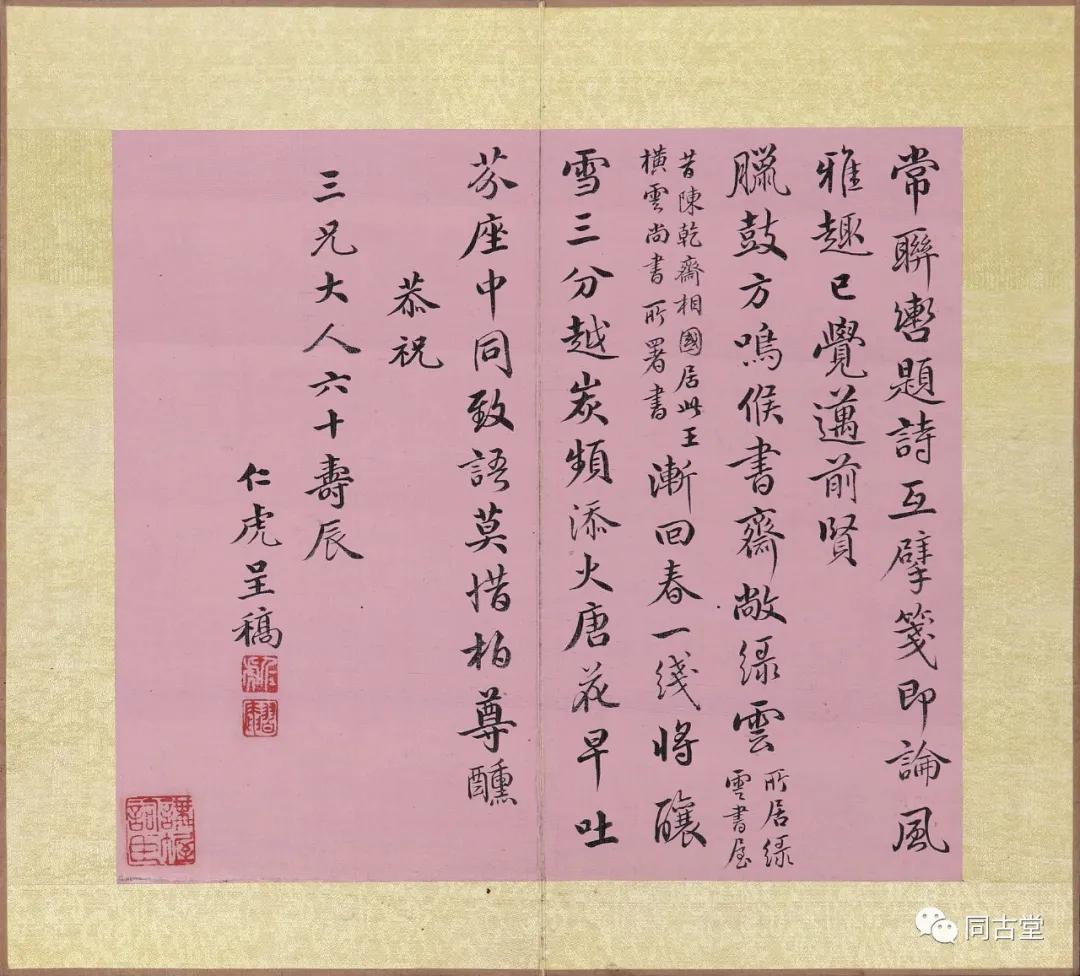 常聯轡題詩互擘箋即論風
雅趣已覺邁前賢
臘鼓方鳴候書齋敞綠雲
所居綠
雲書屋
昔陳乾齋相國居此王
橫雲尚書所署書
漸回春一綫將釀
雪三分越炭頻添火唐花早吐
芬座中同致語莫惜柏尊醺
恭祝
三兄大人六十壽辰
仁虎呈稿
同古堂